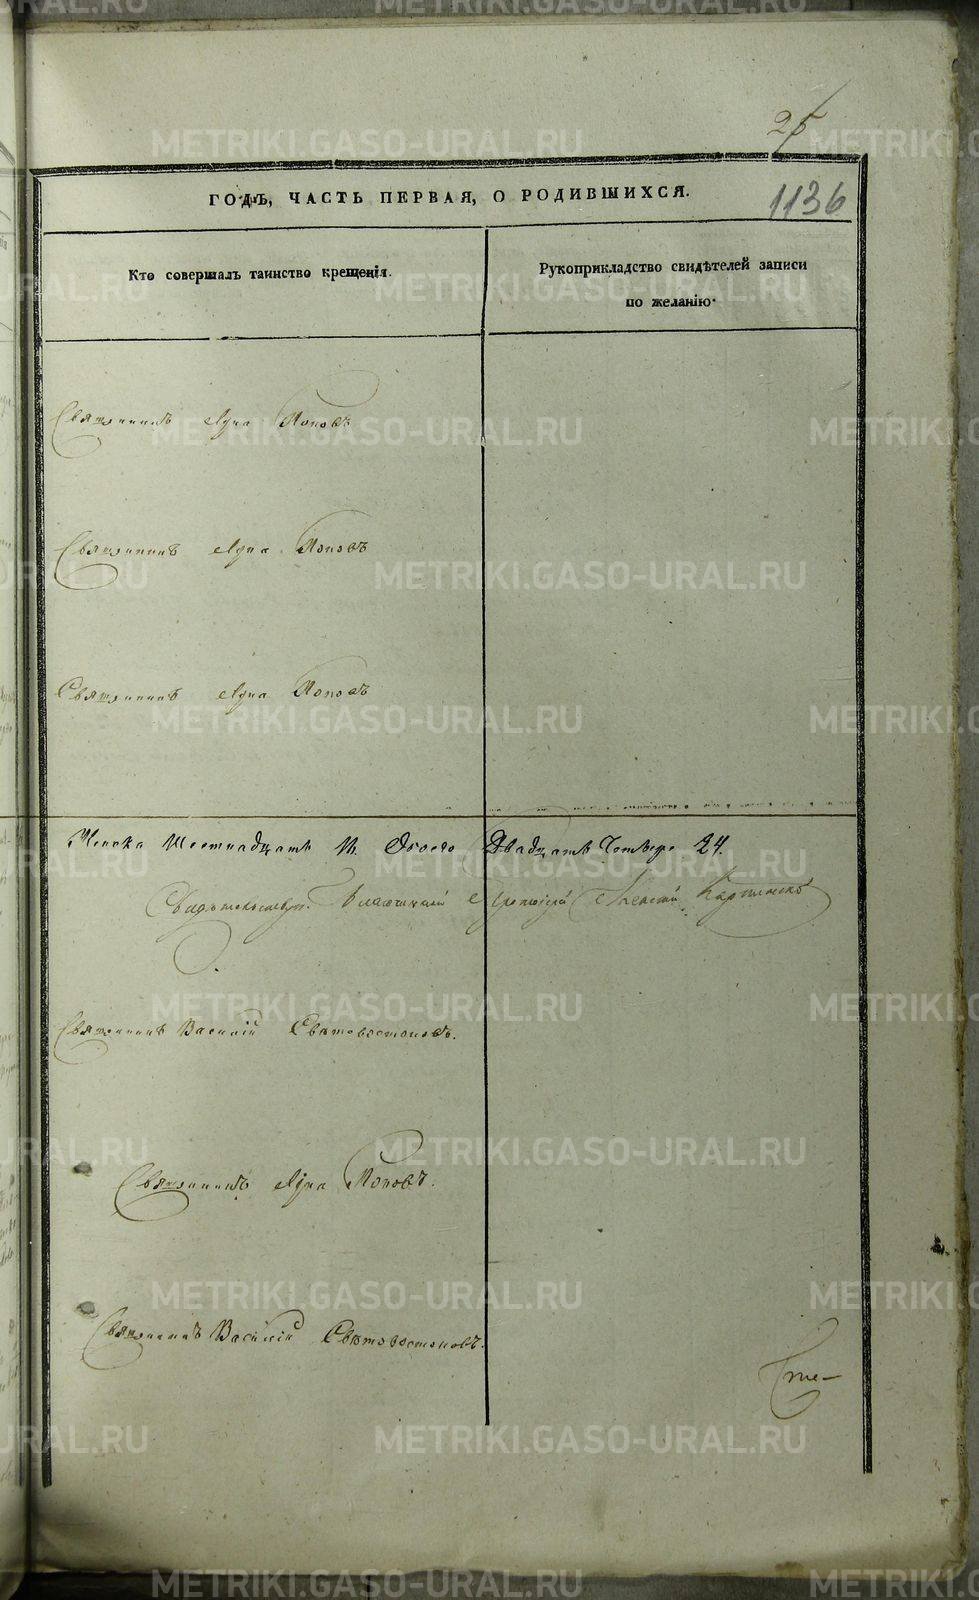 25
1136
ГОДЪ, ЧАСТЬ ПЕРВАЯ, О РОДИВШИХСЯ.
Кто совершалъ таинство крещенія.
Рукоприкладство свидѣтелей записи
по желанію.
Священникъ Лука Поповъ
Священникъ Лука Поповъ
Священникъ Лука Поповъ
Женска Шестнадцать 16. Обоего Двадцать Четыре 24.
Священникъ Василий Свѣтовостоковъ.
Священникъ Лука Поповъ.
Священникъ Василий Свѣтовостоковъ.
METRIKI.GASO-URAL.RU